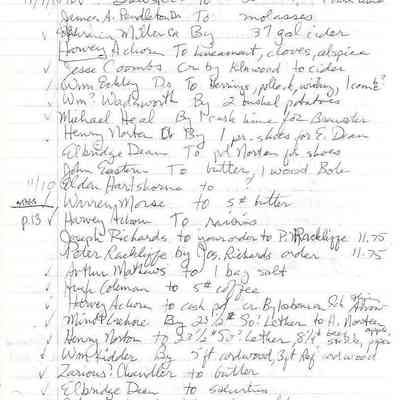 James A. Pendleton Dr To molasses
Miller Cr By 37 gal cider
Harvey Achorn To liniment, cloves, alspice
Jesse Coombs Cr by kilnwood to cider
Wm Eckley Dr To herrings, pollock, 1 comb?
Wm? Wadsworth By 2 bushel potatoes
Michael Heal By 1 cask lime for Brewster
Henry Norton Cr By 1 pr. shoes for E. Dean
Elbridge Dean To pd Norton for shoes
John Eastern To butter, 1 wood Bole
11/10 Elden Hartshorne to ?
Warren Morse to 5# butter
p.13 Harvey Achorn To raisins
Joseph Richards to your order to P. Rackliffe 11.75
Peter Rackliffe by Jos. Richards order 11.75
Arthur Mathews to 1 bag salt
Hugh Coleman to 5# coffee
Harvey Achorn to cash pd cr. By
Minot Crehore By 23 1/2# So? Lether to H. Norton
Henry Norton to 23 1/2# So? Lether, 8 1/4#
Wm Kidder By 5 ft cordwood, 3 ft Ref cordwood
Zarious? Chandler to butter
Elbridge Dean to saleratus